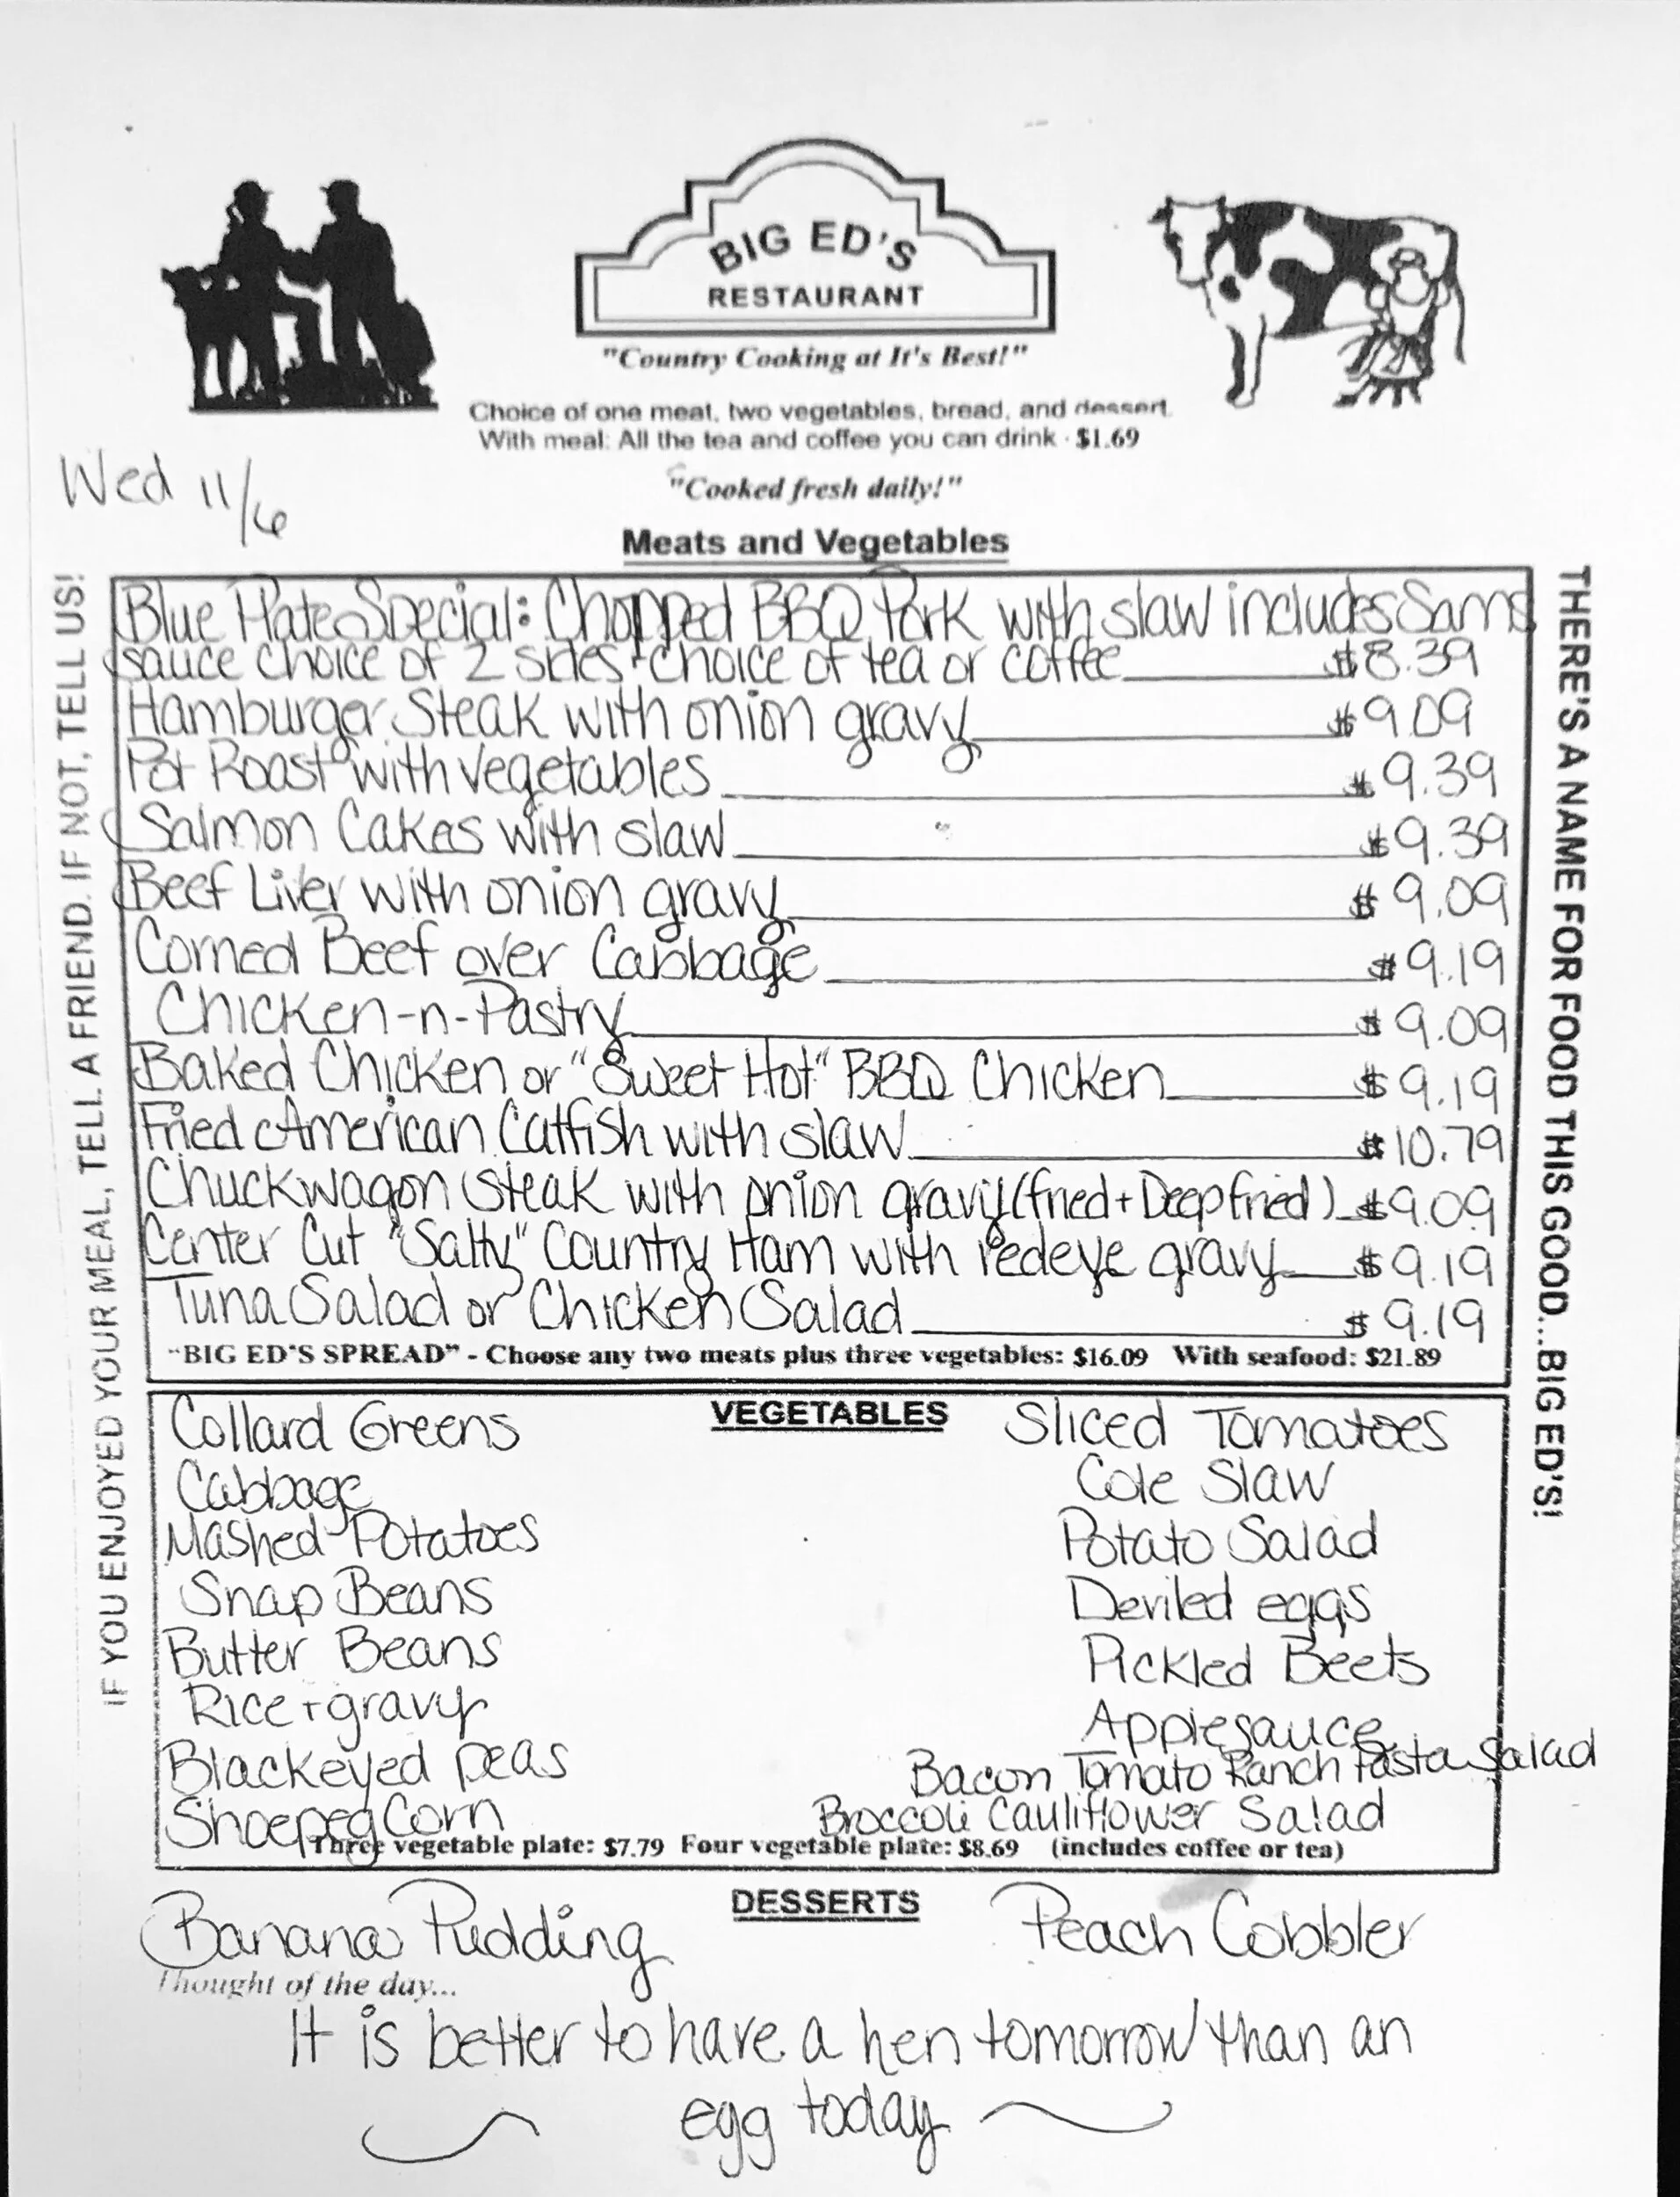 BIG ED'S
RESTAURANT
"Country Cooking at It's Best!"
Choice of one meat, two vegetables, bread, and dessert.
With meal: All the tea and coffee you can drink - $1.69
Wed 11/6
"Cooked fresh daily!"
Meats and Vegetables
IF YOU ENJOYED YOUR MEAL, TELL A FRIEND. IF NOT, TELL US!
THERE'S A NAME FOR FOOD THIS GOOD...BIG ED'S!
Blue Plate Special: Chopped BBQ Pork with slaw includes Sams
sauce choice of 2 sides + choice of tea or coffee $8.39
Hamburger Steak with onion gravy $9.09
Pot Roast with vegetables $9.39
Salmon Cakes with slaw $9.39
Beef Liver with onion gravy $9.09
Corned Beef over Cabbage $9.19
Chicken-n-Pastry $9.09
Baked Chicken or "Sweet Hot" BBQ Chicken $9.19
Fried American Catfish with slaw $10.79
Chuckwagon Steak with onion gravy (fried + Deep fried) $9.09
Center Cut "Salty" Country Ham with redeye gravy $9.19
Tuna Salad or Chicken Salad $9.19
"BIG ED'S SPREAD" - Choose any two meats plus three vegetables: $16.09 With seafood: $21.89
VEGETABLES
Collard Greens
Cabbage
Mashed Potatoes
Snap Beans
Butter Beans
Rice + gravy
Blackeyed peas
Shoepeg Corn
Sliced Tomatoes
Cole Slaw
Potato Salad
Deviled eggs
Pickled Beets
Applesauce
Bacon Tomato Ranch Pasta Salad
Broccoli Cauliflower Salad
Three vegetable plate: $7.79 Four vegetable plate: $8.69 (includes coffee or tea)
DESSERTS
Banana Pudding
Peach Cobbler
Thought of the day...
It is better to have a hen tomorrow than an
egg today